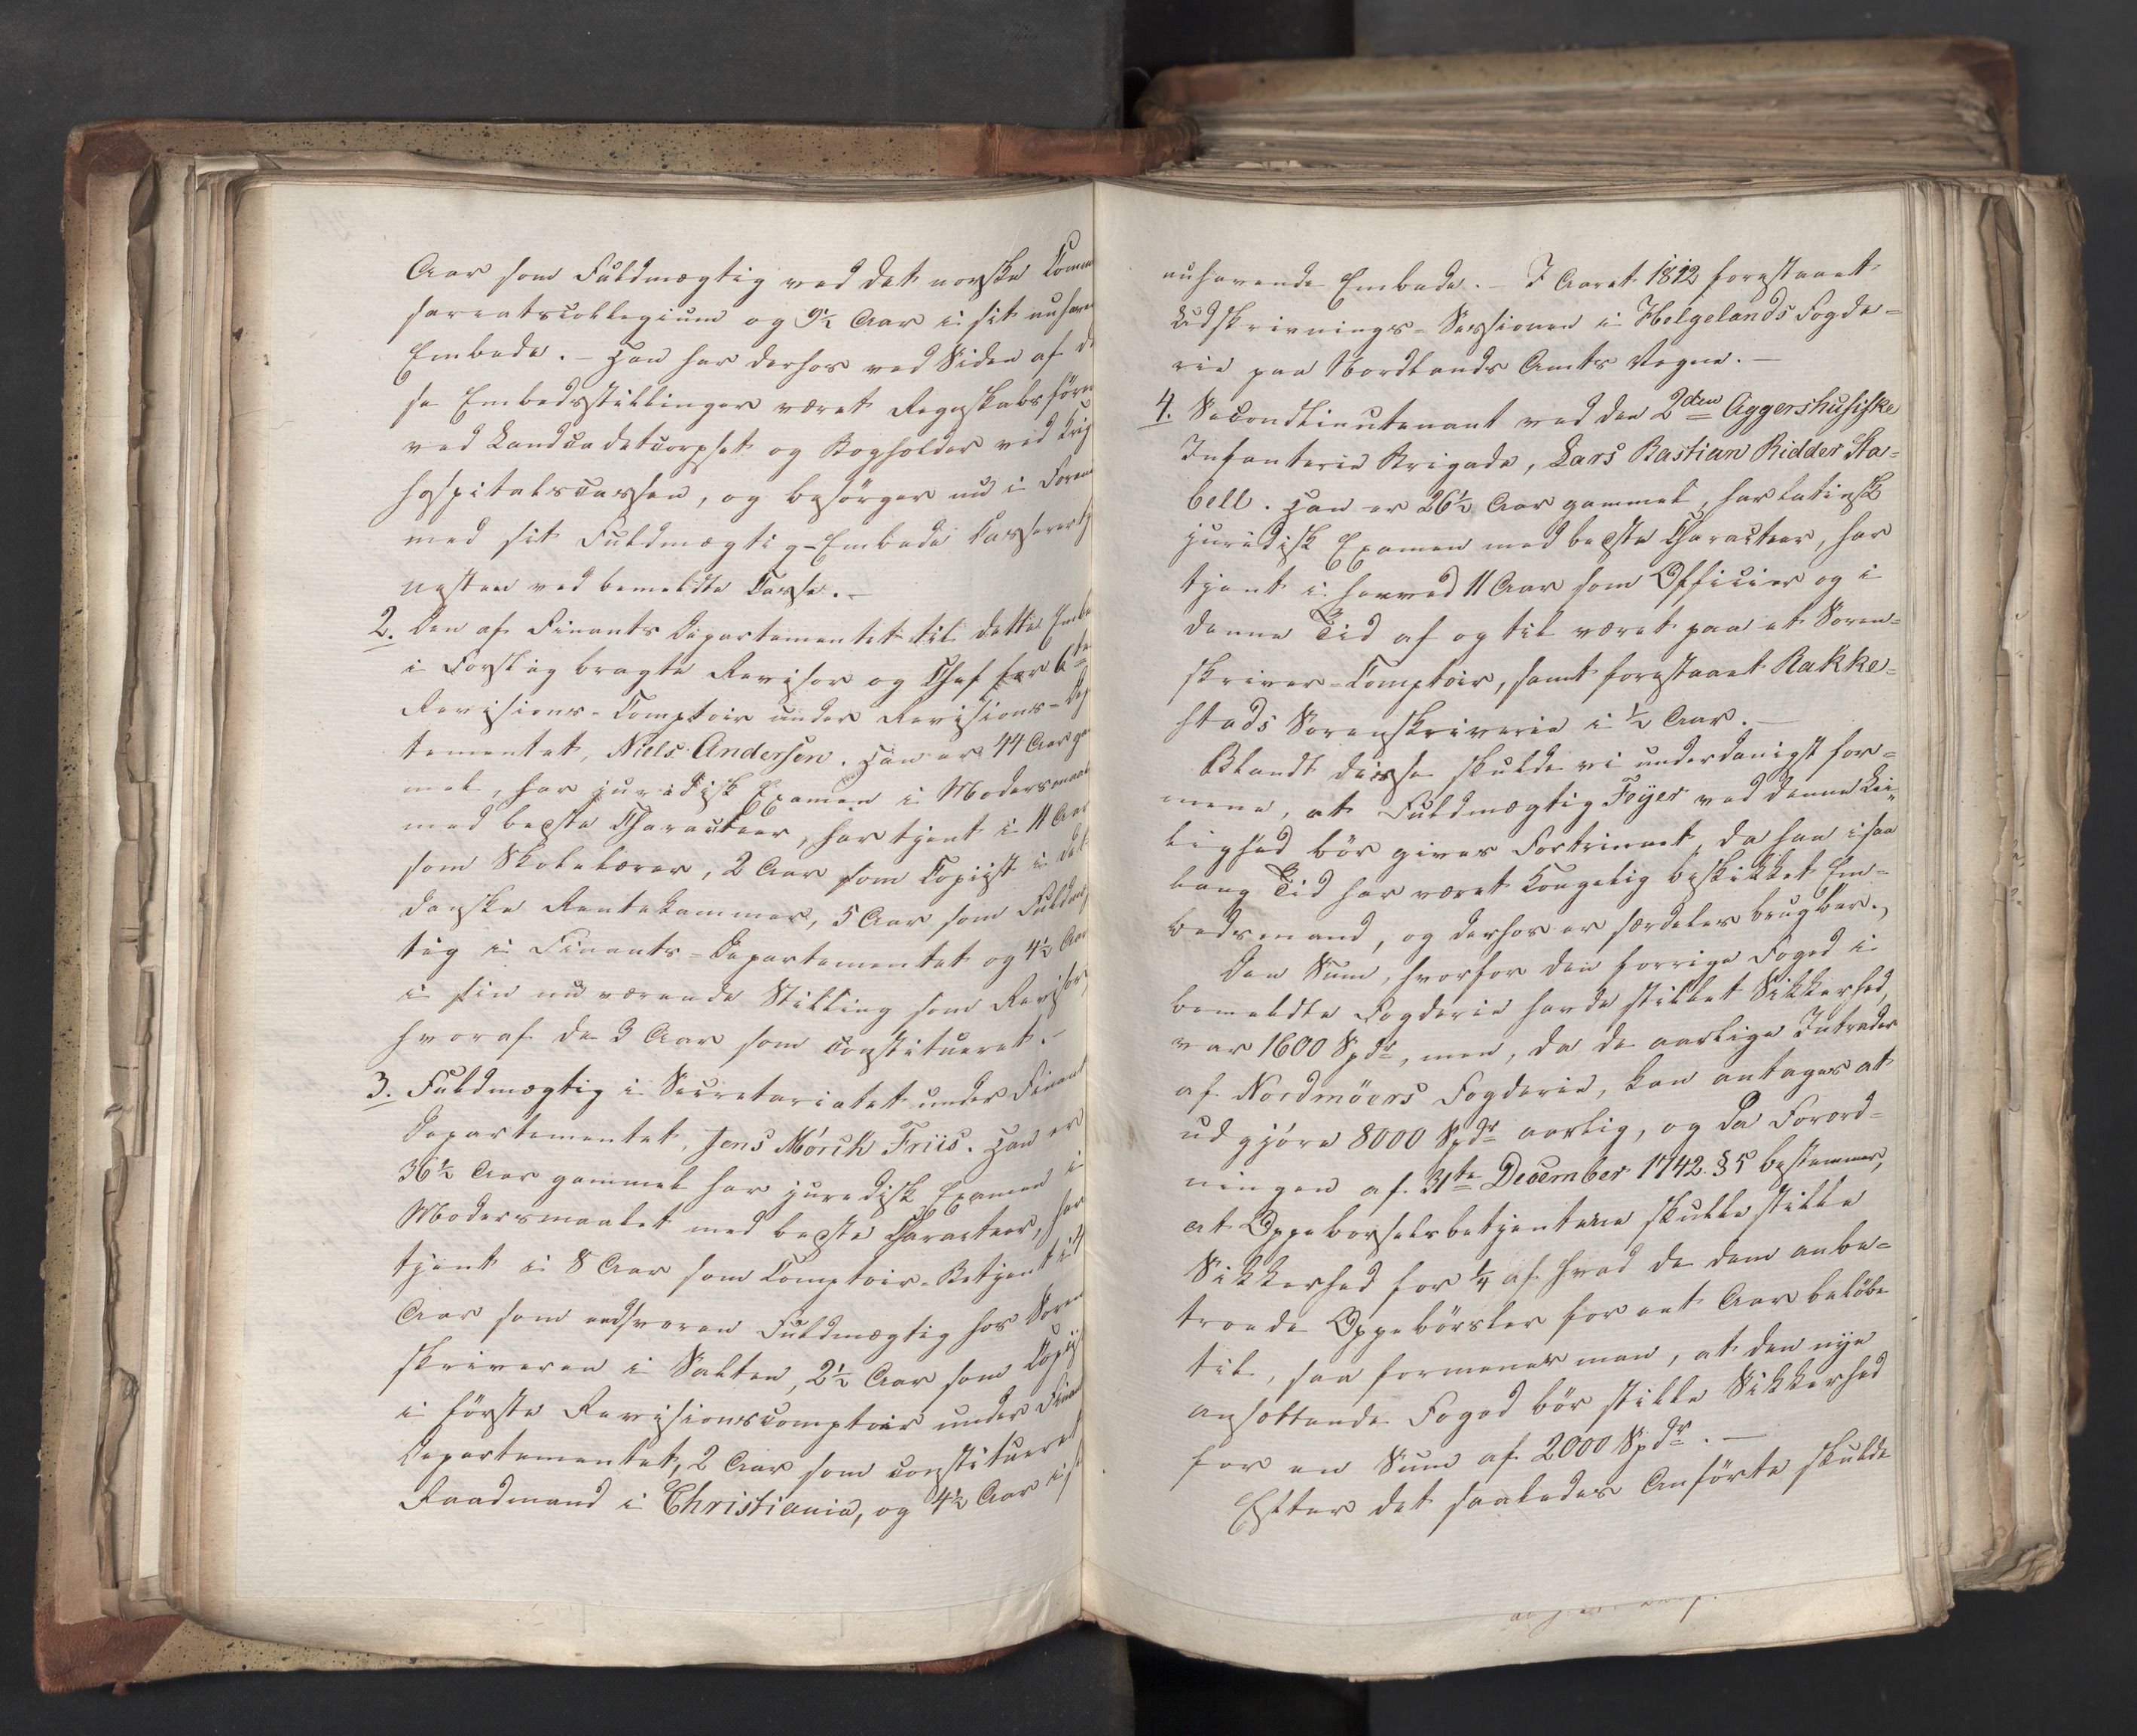 Aar som Fuldmægtig ved det norske Comm
sariatscollegium og 9½ Aar i sit nuhave
Embede. – Han har derhos ved Siden af d
se Embedsstillinger været Regnskabsföre
ved Landcadetcorpset og Bogholder ved Krig
hospitalscassen, og besörger nu i Foren
med sit Fuldmægtig-Embede Casserertj
nesten ved bemeldte Casse. –
2. Den af Finants Departementet til dette Embe
i Forslag bragte Revisor og Chef for 6te
Revisions-Comptoir under Revisions-Dep
tementet, Niels Andersen. Han er 44 Aar ga
mel, har juridisk Examen i Modersmaal
med bedste Characteer, har tjent i 11 Aar
som Skolelærer, 2 Aar som Copiist i det
danske Rentekammer, 5 Aar som Fuldmæg
tig i Finants-Departementet og 4½ Aar
i sin nu værende Stilling som Revisor,
hvoraf de 3 Aar som constitueret. –
3. Fuldmægtig i Secretariatet under Finant
Departementet, Jens Mörch Friis. Han er
36½ Aar gammel har juridisk Examen i
Modersmaalet med bedste Characteer, har
tjent i 8 Aar som Comptoir-Betjent i
Aar som eedsvoren Fuldmægtig hos Soren
skriveren i Salten, 2½ Aar som Copiist
i förste Revisionscomptoir under Finan
Departementet, 2 Aar som constitueret
Raadmand i Christiania, og 4½ Aar i s
nuhavende Embede. – I Aaret 1812 forestaaet
Udskrivnings-Sessionen i Helgelands Fogde-
rie paa Nordlands Amts Vegne. –
4. Secondlieutenant ved den 2den Aggershusiske
Infanterie Brigade, Lars Bastian Ridder Sta-
bell. Han er 26½ Aar gammel, har latinsk
juridisk Examen med bedste Characteer, har
tjent i henved 11 Aar som Officier og i
denne Tid af og til været paa et Soren-
skriver-Comptoir, samt forestaaet Rakke-
stads Sorenskriverie i ½ Aar. –
Blandt disse skulde vi underdanigst for-
mene, at Fuldmægtig Feyer ved denne Lei-
lighed bör gives Fortrinnet, da han i saa
lang Tid har været Kongelig beskikket Em-
bedsmand, og derhos er særdeles brugbar.
Den Sum, hvorfor den forrige Foged i
bemeldte Fogderie havde stillet Sikkerhed,
var 1600 Spdr, men, da de aarlige Intrader
af Nordmöers Fogderie, kan antages at
udgjöre 8000 Spdr aarlig, og da Forord-
ningen af 31te December 1742. § 5 bestemmer,
at Oppebörselsbetjentene skulle stille
Sikkerhed for ¼ af hvad de dem anbe-
troede Oppebörsler for eet Aar belöbe
til, saa formener man, at den nye
ansættende Foged bör stille Sikkerhed
for en Sum af 2000 Spdr. –
Efter det saaledes Anförte skulde